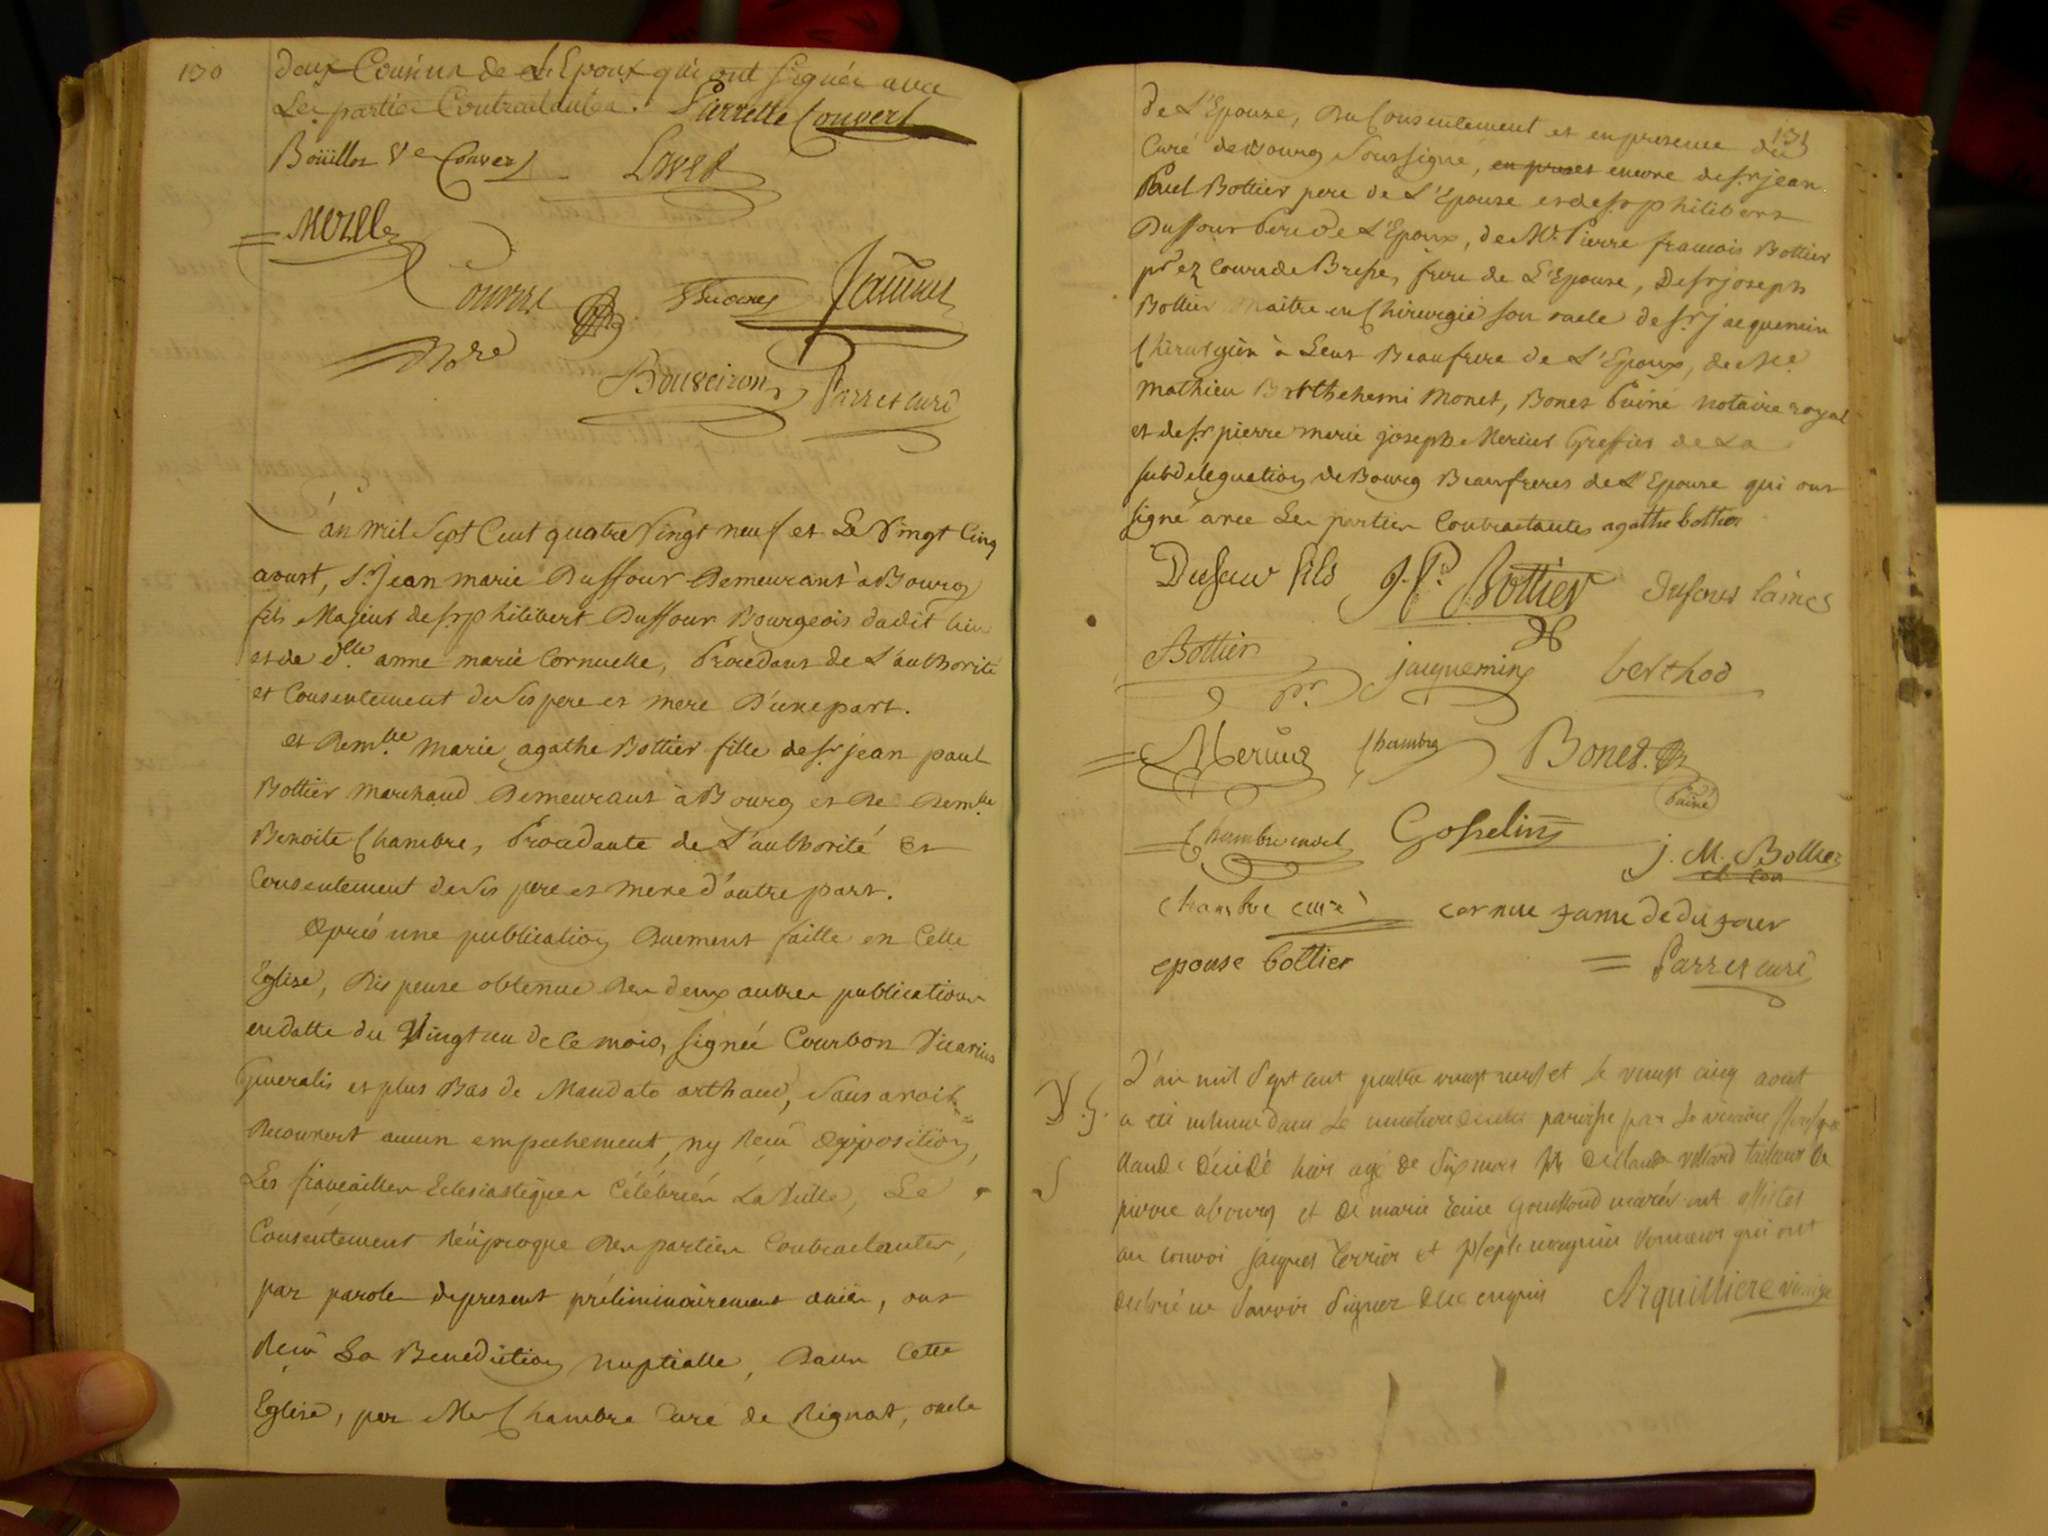 130
deux Cousins de l'Epoux qui ont signés avec
Les parties Contractantes. Pierrette Convert
Boüillod Ve Convert
Morelle
Convert
Bouveiron Parret curé
L'an mil Sept Cent quatre Vingt neuf et Le Vingt Cinq
aoust, Sr Jean marie Duffour Demeurant à Bourg
fils Majeur de sr philibert Duffour Bourgeois dudit lieu
et de dlle anne marie Cornuelle, Procedant de L'authorité
et Consentement de ses pere et mere D'une part.
et Demlle marie agathe Bottier fille de sr jean paul
Bottier marchand Demeurant à Bourg et de Demlle
Benoite Chambre, Procedante de L'authorité et
Consentement de ses pere et mere d'autre part.
Après une publication Duement faitte en Cette
Eglise, Dispense obtenue des deux autres publications
en datte du Vingt un de ce mois, signée Courbon Vicarius
Generalis et plus Bas de Mandato arthaud, Sans avoir
Decouvert aucun empechement, ny Reçu opposition,
Les fiançailles Eclesiastiques Célébrées La Veille, Le
Consentement Réciproque des parties Contractantes,
par paroles de present préliminairement ouies, ont
Reçu La Benediction nuptialle, Dans Cette
Eglise, par Mr Chambre Curé de Rignat, oncle
131
de L'Epouse, Du Consentement et en presence du
Curé de Bourg Soussigné, en presen encore de sr jean
Paul Bottier pere de L'Epouse et de sr philibert
Duffour Pere de L'Epoux, de Me Pierre francois Bottier
pr ez Cours de Bresse, frere de L'Epouse, De sr joseph
Bottier Maitre en Chirurgie son oncle de sr jacquemin
Chirurgien à Beaufrere de L'Epoux, de Me
Mathieu Barthelemi Monet, Bonet Puiné notaire royal
et de sr pierre marie joseph Merius Greffier de La
subdelegation de Bourg Beaufreres de L'Epouse qui ont
signé avec Les parties Contractantes agathe bottier
Dufour fils J. P. Bottier Dufour lainé
Bottier pr. jacquemin berthod
Merius Chambre Bonet puiné
Chambre Gosselin j. M. Bottier
chambre curé cornue fame de dufour
epouse bottier Parret curé
L'an mil Sept cent quatre vingt neuf et le vingt cinq aout
V. G. a été inhumé dans Le cimetiere de cette paroisse par Le vicaire soussigné
claude décédé hier agé de Six mois fils de claude villard tailleur de
pierre a bourg et de marie reine mariés ont assistés
au convoi jacques terrier et joseph qui ont
declaré ne Savoir Signer de ce enquis Arquilliere vicaire